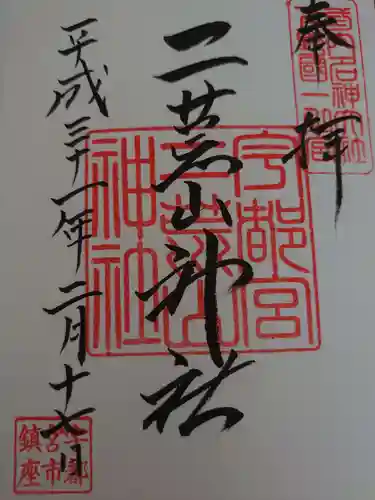 奉拝
二荒山神社
平成三十一年二月十七日
宇都宮
二荒山
神社
宇都宮市鎮座